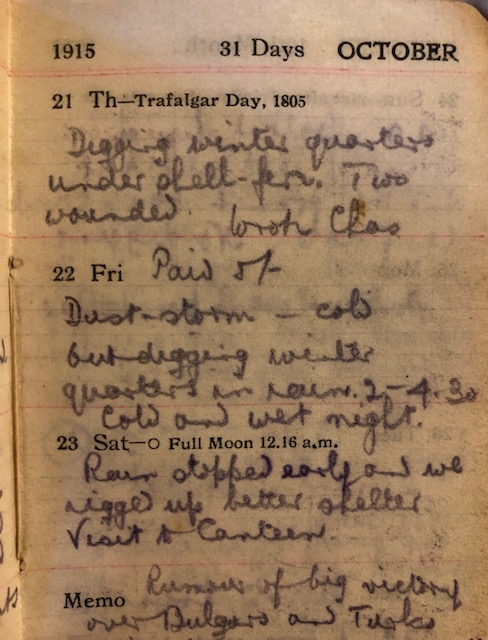 1915 31 Days OCTOBER
21 Th—Trafalgar Day, 1805
Digging winter quarters
under shell-fire. Two
wounded. Wrote Chas
22 Fri Paid 5/-
Dust-storm - cold
but digging winter
quarters in rain. 2-4.30
Cold and wet night.
23 Sat—O Full Moon 12.16 a.m.
Rain stopped early and we
rigged up better shelter
Visit to Canteen.
Memo Rumour of big victory
over Bulgars and Turks